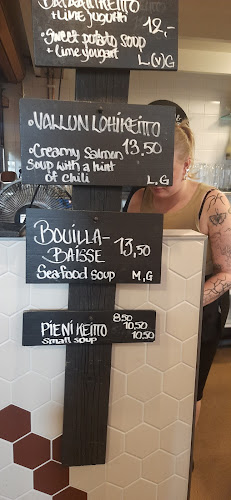 +Lime yogurtti
12,-
•Sweet potato soup
+ Lime yougart
L (V) G
•VALLUN LOHIKEITTO
13,50
•Creamy Salmon
SOUP WITH A HINT
OF CHILI
L, G
BOUILLA-
BAISSE
13,50
Seafood SOUP
M, G
PIENI KEITTO
small soup
8,50
10,50
10,50